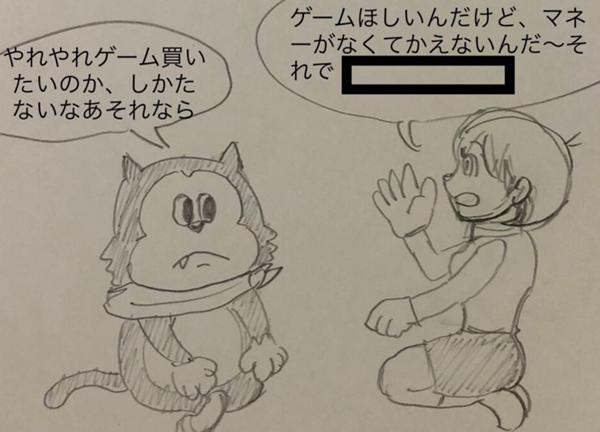 ゲームほしいんだけど、マネ
ーがなくてかえないんだ～そ
れで
やれやれゲーム買い
たいのか、しかた
ないなあそれなら